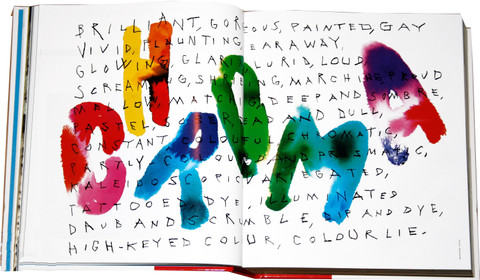 CHROMA
BRILLIANT, GORGEOUS, PAINTED, GAY
VIVID, FLAUNTING, TEARAWAY,
GLOWING, LURID, LOUD,
SCREAMING, MARCHING PROUD
MALLOW, MATCHING, DEEP AND SOMBRE,
PASTEL, AND DULL,
CONSTANT COLOURFUL CHROMATIC,
PARTLY COLOURED AND PRISMATIC,
KALEIDOSCOPIC VARIEGATED,
TATTOOED, DYE, ILLUMINATED
DAUB AND SCRUMBLE, DIP AND DYE,
HIGH-KEYED COLOUR, COLOUR LIE.